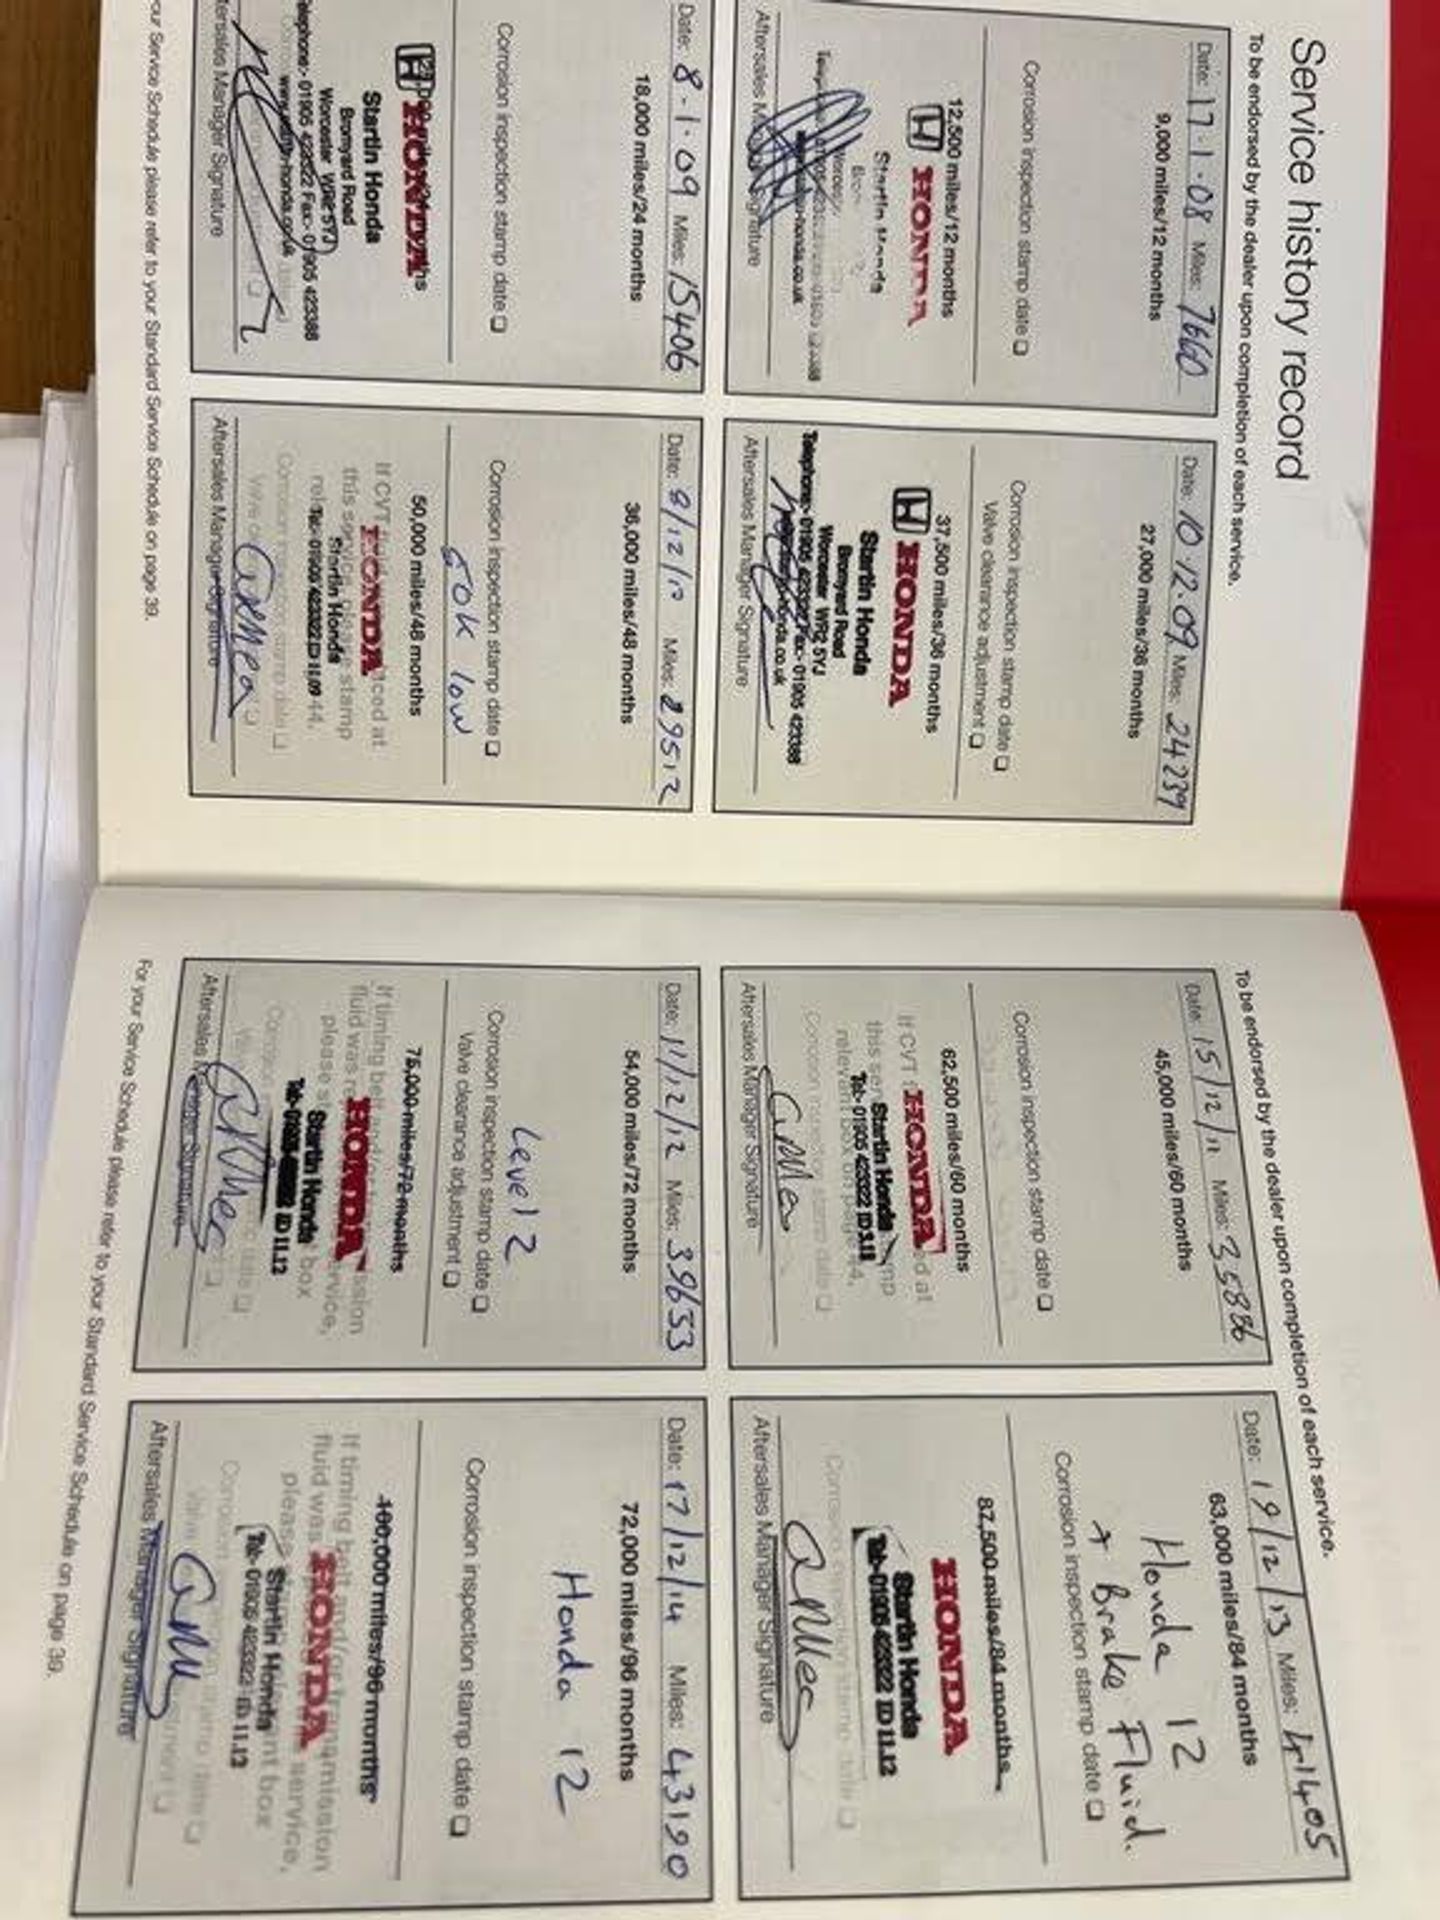 Service history record
To be endorsed by the dealer upon completion of each service.
Date: 17·1·08 Miles: 7660
9,000 miles/12 months
Corrosion inspection stamp date
12,500 miles/12 months
HONDA
Startin Honda
Aftersales Manager Signature
Date: 10·12·09 Miles: 24239
27,000 miles/36 months
Corrosion inspection stamp date
Valve clearance adjustment
37,500 miles/36 months
HONDA
Startin Honda
Bromyard Road
Worcester WR2 5YJ
Telephone:- 01905 423322 Fax:- 01905 423388
Aftersales Manager Signature
Date: 8·1·09 Miles: 15406
18,000 miles/24 months
Corrosion inspection stamp date
HONDA
Startin Honda
Bromyard Road
Worcester WR2 5YJ
Telephone:- 01905 423322 Fax:- 01905 423388
Aftersales Manager Signature
Date: Miles: 29512
36,000 miles/48 months
Corrosion inspection stamp date
50K low
50,000 miles/48 months
HONDA
Startin Honda
Tel:- 01905 423322 ID 11.09
Aftersales Manager Signature
your Service Schedule please refer to your Standard Service Schedule on page 39.
To be endorsed by the dealer upon completion of each service.
Date: 15/12/11 Miles: 35886
45,000 miles/60 months
Corrosion inspection stamp date
62,500 miles/60 months
HONDA
Startin Honda
Tel:- 01905 423322
Aftersales Manager Signature
Date: 19/12/13 Miles: 41405
63,000 miles/84 months
Honda 12
+ Brake Fluid.
Corrosion inspection stamp date
87,500 miles/84 months
HONDA
Startin Honda
Tel:- 01905 423322 ID 11.12
Aftersales Manager Signature
Date: 11/12/12 Miles: 39653
54,000 miles/72 months
Level 2
Corrosion inspection stamp date
Valve clearance adjustment
75,000 miles/72 months
HONDA
Startin Honda
Tel:- 01905 423322 ID 11.12
Aftersales Manager Signature
Date: 17/12/14 Miles: 43190
72,000 miles/96 months
Honda 12
Corrosion inspection stamp date
100,000 miles/96 months
HONDA
Startin Honda
Tel:- 01905 423322 ID 11.12
Aftersales Manager Signature
For your Service Schedule please refer to your Standard Service Schedule on page 39.